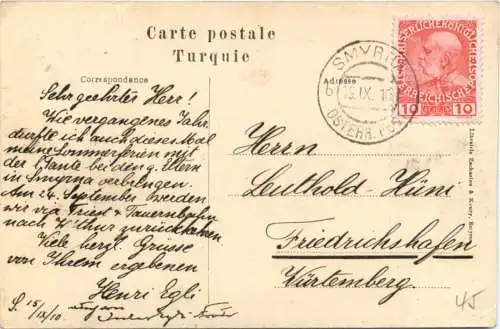 Carte postale
Turquie
Correspondance
Adresse
Sehr geehrter Herr!
Wie vergangenes Jahr,
durfte ich auch dieses Mal
meine Sommerferien mit
der Tante bei den g. Eltern
in Smyrna verbringen.
Am 24. September werden
wir via Triest & Tauernbahn
nach W'thur zurückkehren
Viele herzl. Grüsse
von Ihrem ergebenen
Henri Egli
S. 15/IX/10
SMYRNA
15.IX.10
ÖSTERR. POST
KAISERLICHE KÖNIGLICHE
ÖSTERREICHISCHE POST
10 10
Herrn
Leuthold-Hüni
Friedrichshafen
Würtemberg.
45